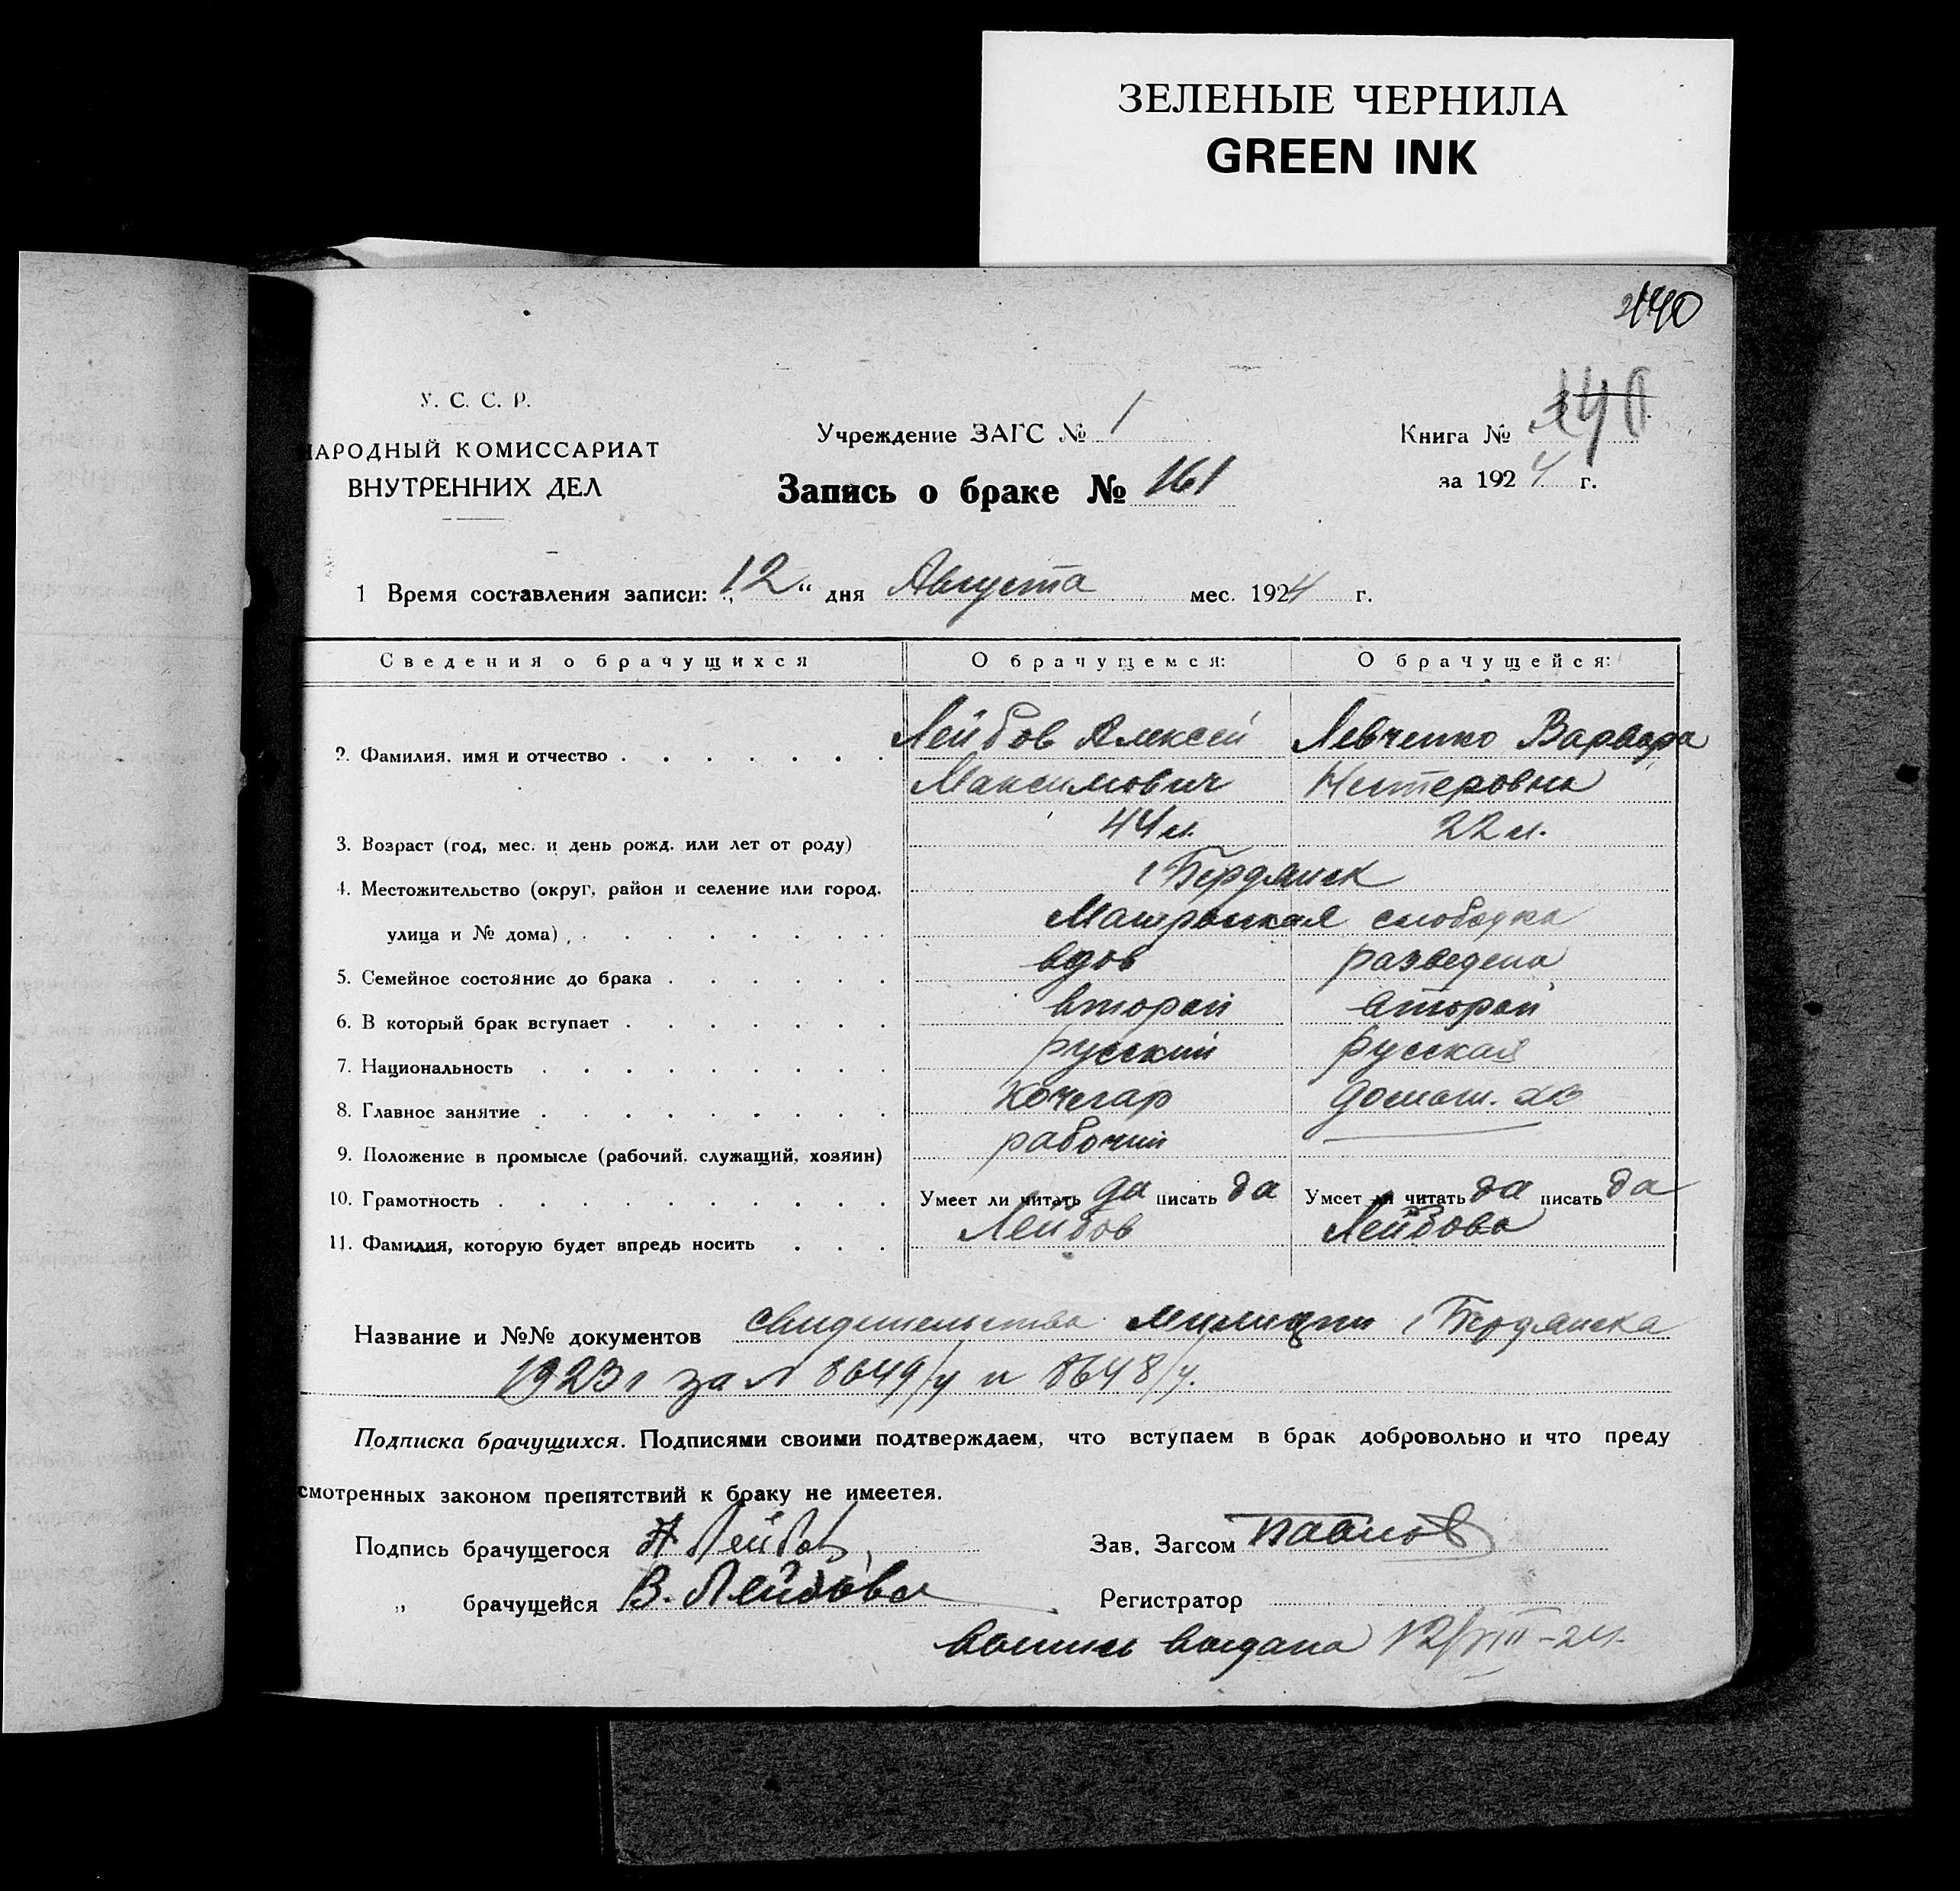 ЗЕЛЕНЫЕ ЧЕРНИЛА
GREEN INK
У. С. С. Р.
НАРОДНЫЙ КОМИССАРИАТ
ВНУТРЕННИХ ДЕЛ
Учреждение ЗАГС № 1
Запись о браке № 161
Книга №
за 1924 г.
1 Время составления записи: „12“ дня Августа мес. 1924 г.
Сведения о брачущихся О брачущемся: О брачущейся:
2. Фамилия, имя и отчество Лейбов Алексей Левченко Варвара
Максимович Нестеровна
3. Возраст (год, мес. и день рожд. или лет от роду) 44 л. 22 л.
4. Местожительство (округ, район и селение или город, г Бердянск
улица и № дома) Матросская слободка
5. Семейное состояние до брака вдов разведена
6. В который брак вступает второй второй
7. Национальность русский русская
8. Главное занятие кочегар домаш. хо
9. Положение в промысле (рабочий, служащий, хозяин) рабочий
10. Грамотность Умеет ли читать да писать да Умеет ли читать да писать да
11. Фамилия, которую будет впредь носить Лейбов Лейбова
Название и №№ документов свидительства милиции г Бердянска
1923 г за № 8649/у и 8648/у.
Подписка брачущихся. Подписями своими подтверждаем, что вступаем в брак добровольно и что преду
смотренных законом препятствий к браку не имеетея.
Подпись брачущегося А Лейбов Зав. Загсом Павлов
„ брачущейся В. Лейбова Регистратор
выдана 12/VIII-24.